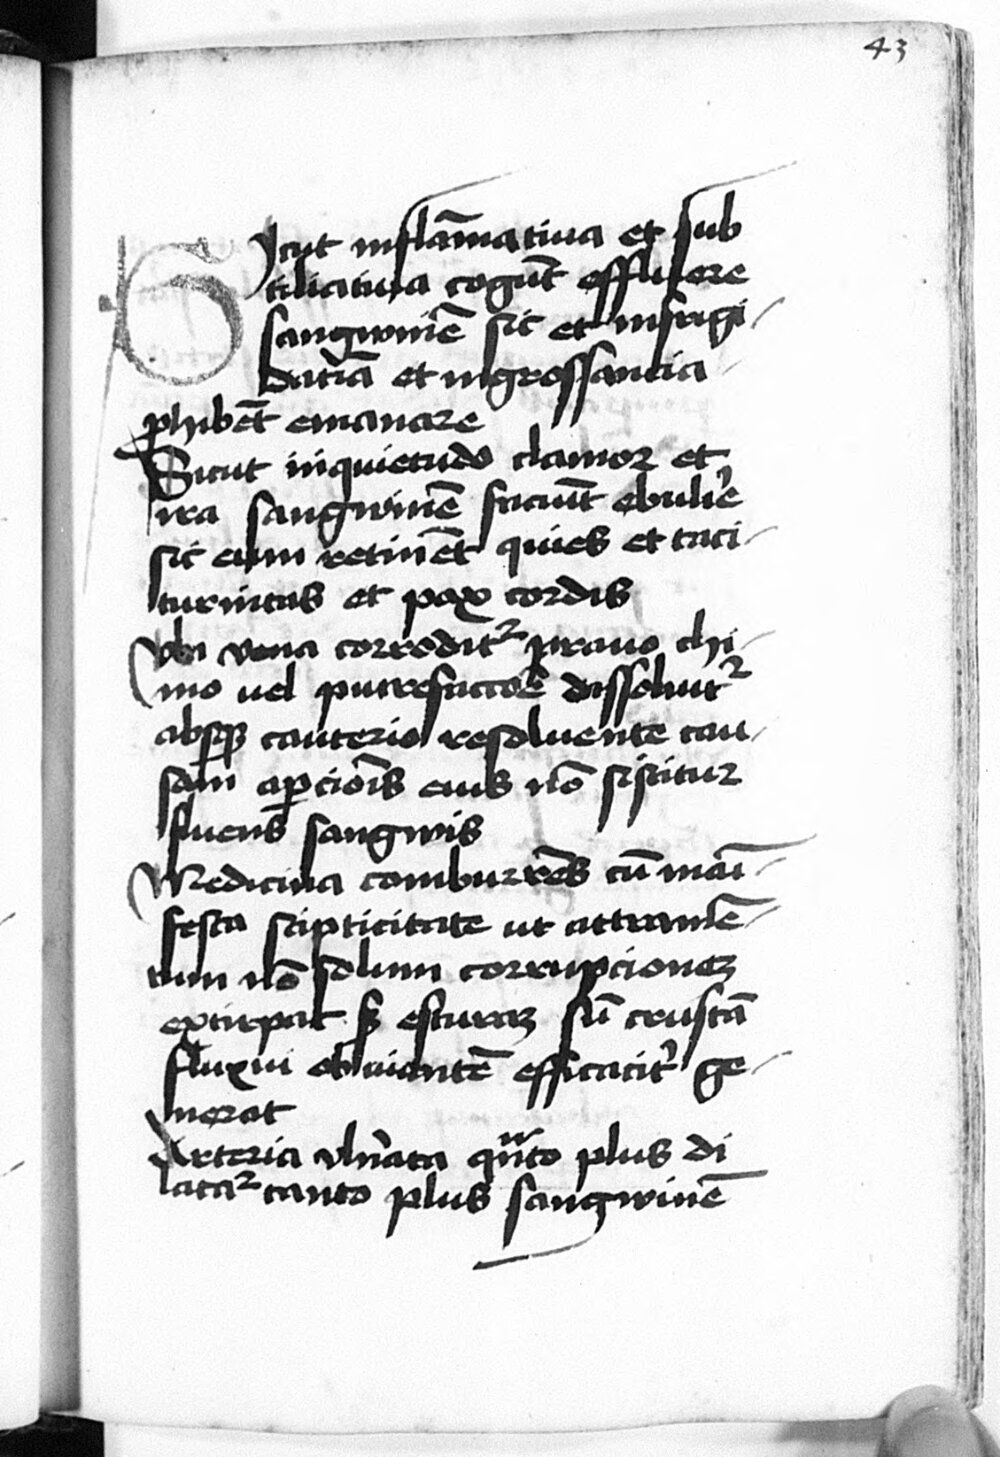 43
Sicut inflāmatiua et sub
tiliatiua cogūt effluere
sangwinē sic et infrigi
datiā et ingrossancia
ꝓhibēt emanare
Sicut inquietudo clamor et
ira sangwinē faciūt ebulir̄e
sic eum retinēt quies et taci
turnitas et pax cordis
Vbi vena corroditᷣ prauo chi
mo uel putrefactōē dissoluitᷣ
absqꝫ cauterio resoluente cau
sam aꝑcionis eius nō sistitur
fluens sangwis
Medicina comburēs cū mani
festa stipticitate ut attramē
tum nō solum corrupcionē
extirpat sꝫ escaraꝫ siue crustā
fluxui obuiantē efficacit̄ ge
nerat
Arteria vlnīata qͣnto plus di
lataᷣ tanto plus sangwinē